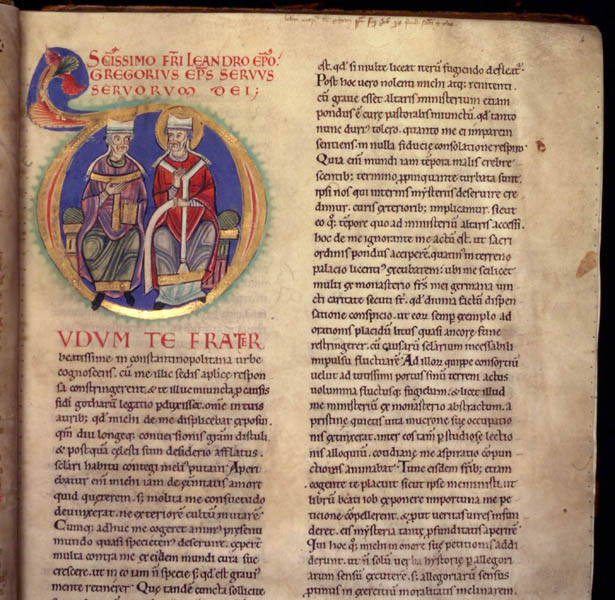 SCĪSSIMO FR̄I LEANDRO EP̄O.
GREGORIVS EP̄S SERVVS
SERVORVM DEI;
UDUM TE FRATER
beatissime in constantinopolitana urbe
cognoscens. cū me illic sedis aplice respon
sa constringerent. & te illuc iniuncta p causis
fidei gothorū legatio pduxisset. om̄e in tuis
aurib; qd michi de me displicebat exposui.
qm̄ diu longeq; conuersionis gr̄am distuli
& postquā celesti sum desiderio afflatus.
sclari habitu contegi meli putaui. Aperi
ebatur eni michi iam de etnitatis amore
quid quererem. s; inolita me consuetudo
deuinxerat. ne exteriorē cultū mutarē.
Cumq; adhuc me cogeret anim psenti
mundo quasi specieten deseruire. ceper
multa contra me ex eiusdem mundi cura suc
crescere. ut in eo iam n̄ specie s; qd est graui
mente retinerer. Que tandē cuncta sollicite
est. qd si multe liceat iterū fugiendo defleat.
Post hoc uero nolenti michi atq; renitenti.
cū graue esset altaris ministerium etiam
pondus ē cure pastoralis iniunctū. qd tanto
nunc duri tolero. quanto me ei imparem
sentiens. in nulla fiducie consolatione respiro.
Quia eni mundi iam tēpora malis crebre
scentib; termino ppinquante turbata sunt.
ipsi nos qui internis mysteriis deseruire cre
dimur. curis exteriorib; implicamur. sicut
eo q; tēpore quo ad ministeriū altaris accessi.
hoc de me ignorante me actū est. ut sacri
ordinis pondus acciperē. quatin in terreno
palatio licenti excubarem. ubi me scilicet
multi ex monasterio fr̄s mei germana uin
cti caritate secuti st̄. qd diuina factū dispen
satione conspicio. ut eorū semp exemplo ad
orationis placidū litus quasi ancorę fune
restringerer. cū causarū sclarium incessabili
impulsu fluctuarē. Ad illor quippe consortiū
uelut ad tutissimi portus sinū terreni actus
uolumina fluctusq; fugiebam. & licet illud
me ministeriū ex monasterio abstractum. a
pristine quietis uita mucrone sue occupatio
nis extinxerat. inter eos tam p studiose lectio
nis alloquiū. cotidianę me aspiratio cōpun
ctionis animabat. Tunc eisdem fr̄ib; etiam
cogente te placuit sicut ipse meministi. ut
librū beati iob exponere importuna me pe
titione cōpellerent. & put ueritas uires infun
deret. eis mysteria tantę pfunditatis aperirē.
Qui hoc q; michi in onere sue petitionis addi
derunt. ut n̄ solū uerba hystorię p allegori
arum sensus excuterē. s; allegoriarū sensus
ptinus in exercitiū moralitatis inclinarem.